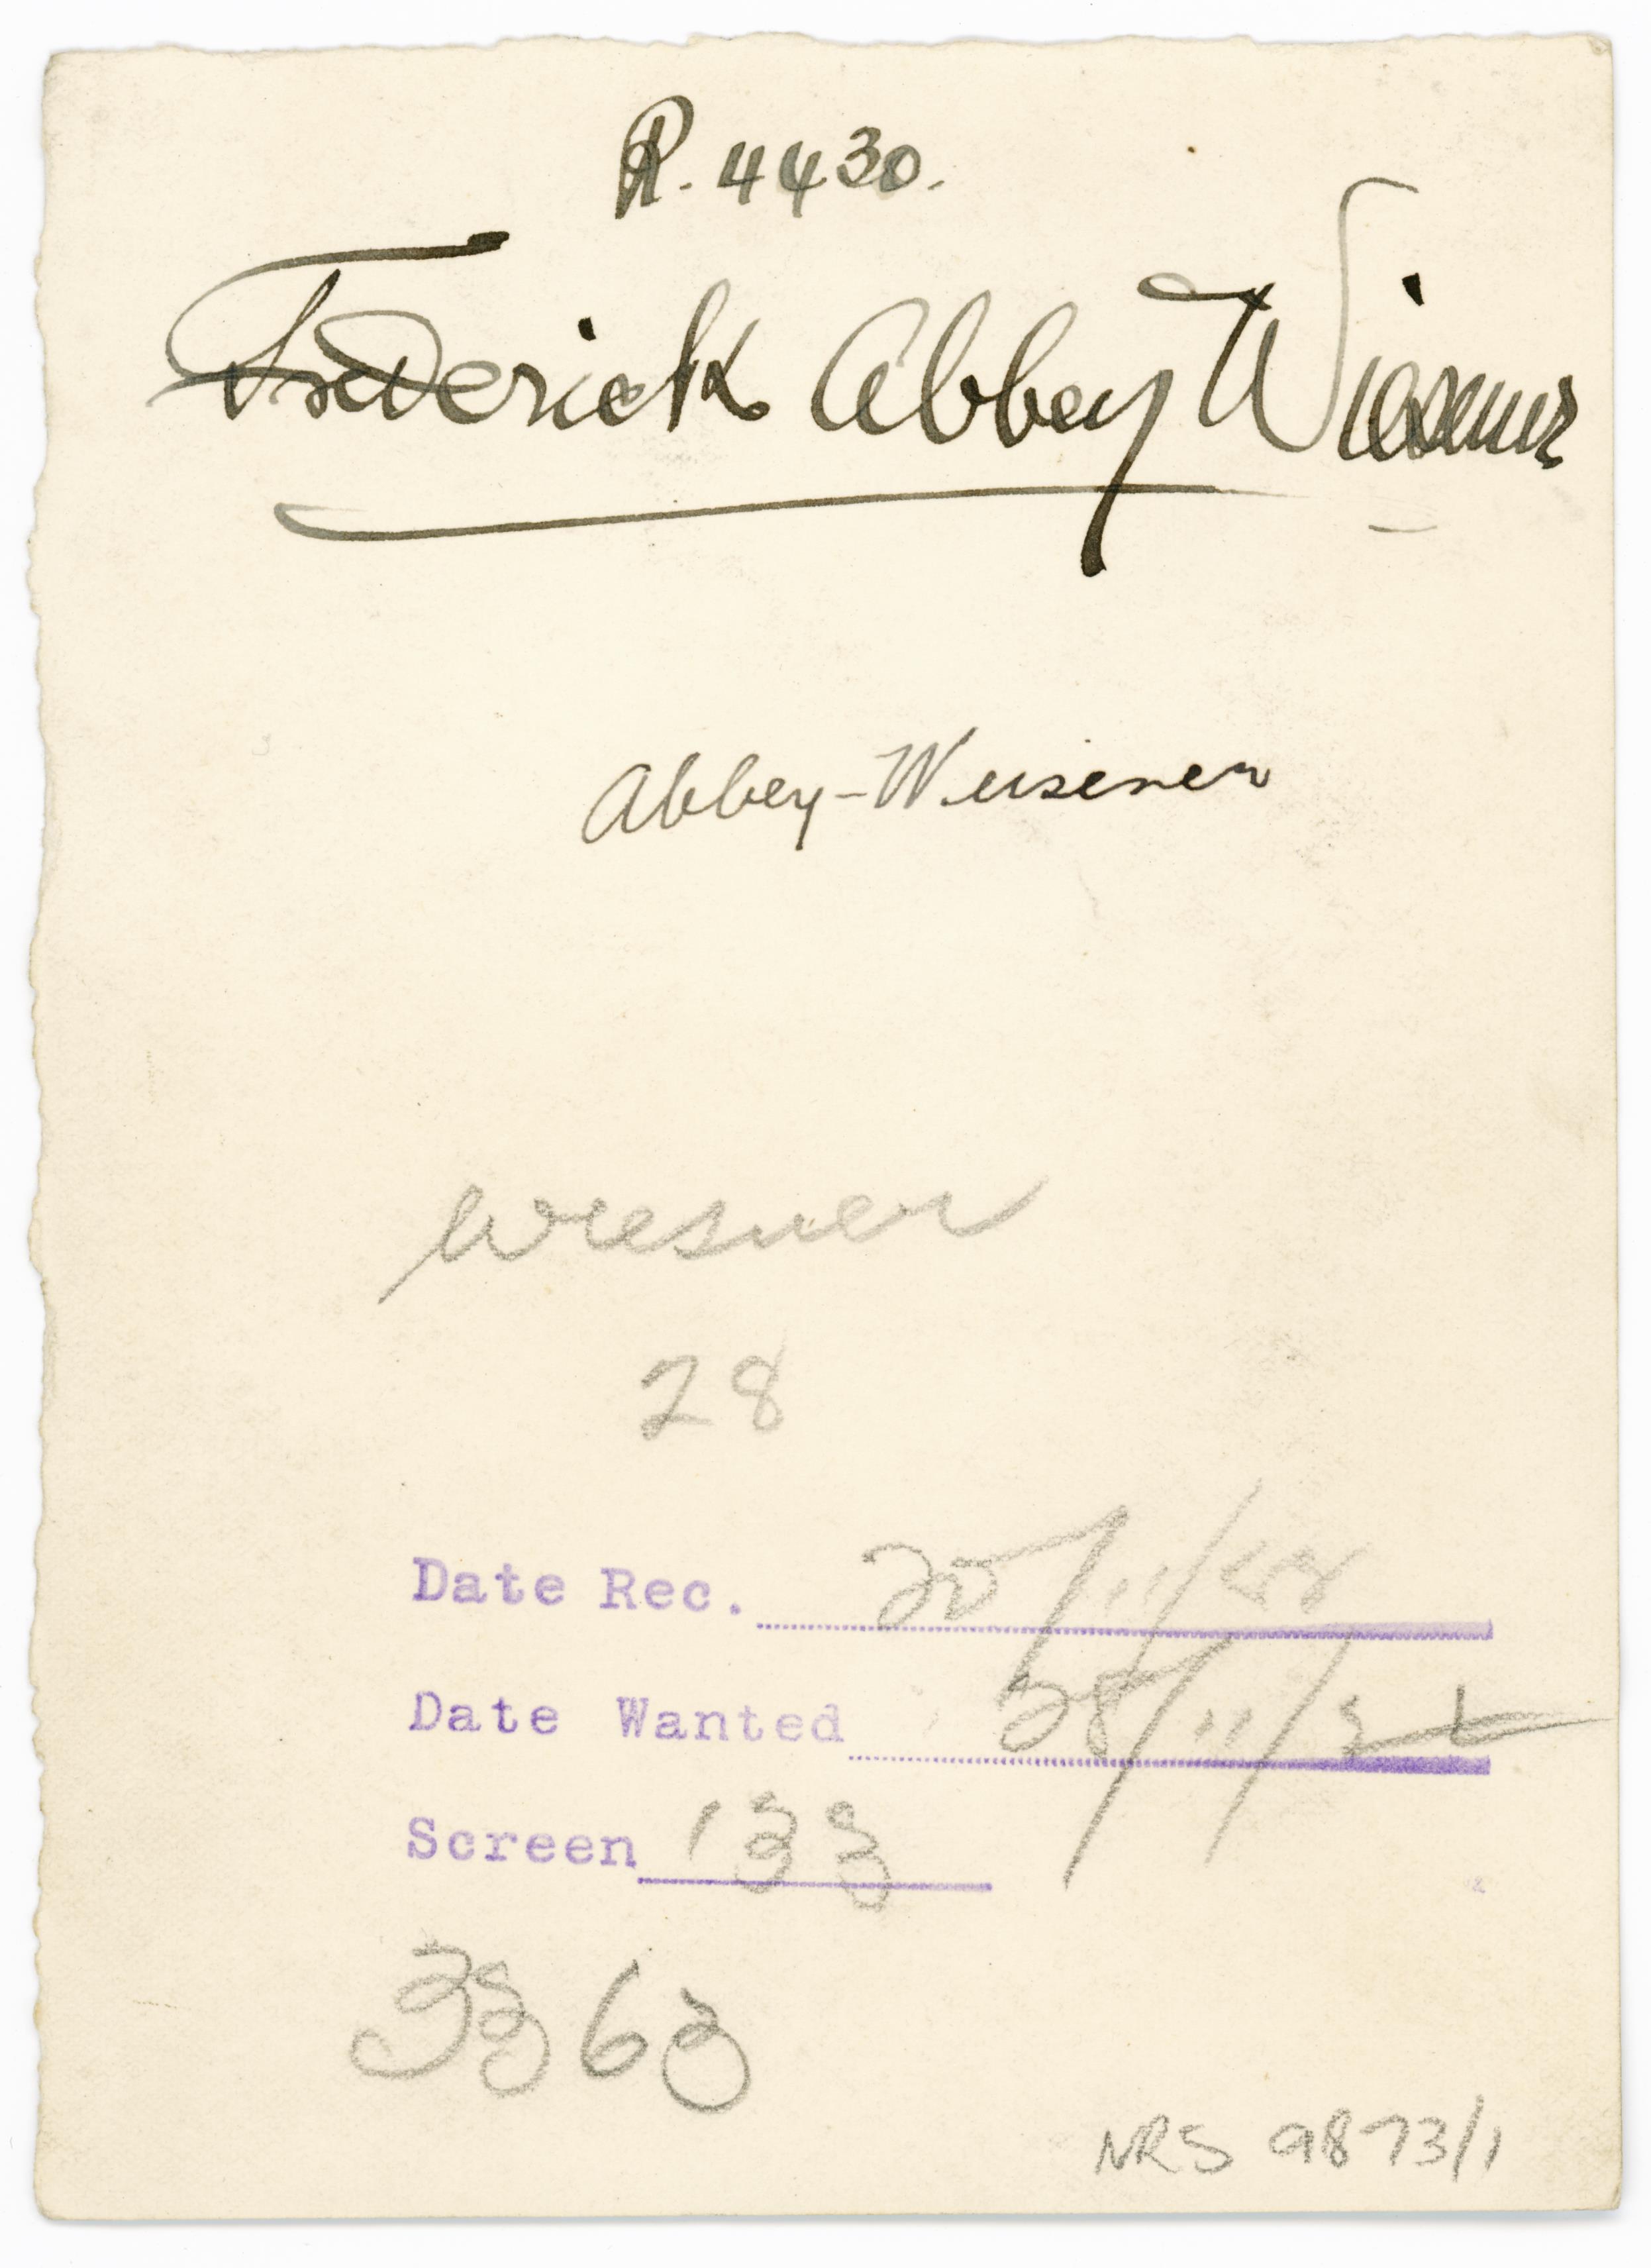 R. 4430.
Frederick Abbey Wiesener
Abbey-Weisener
Wiesner
28
Date Rec. 20/11/
Date Wanted 28/11/
Screen 133
3363
NRS 9873/1